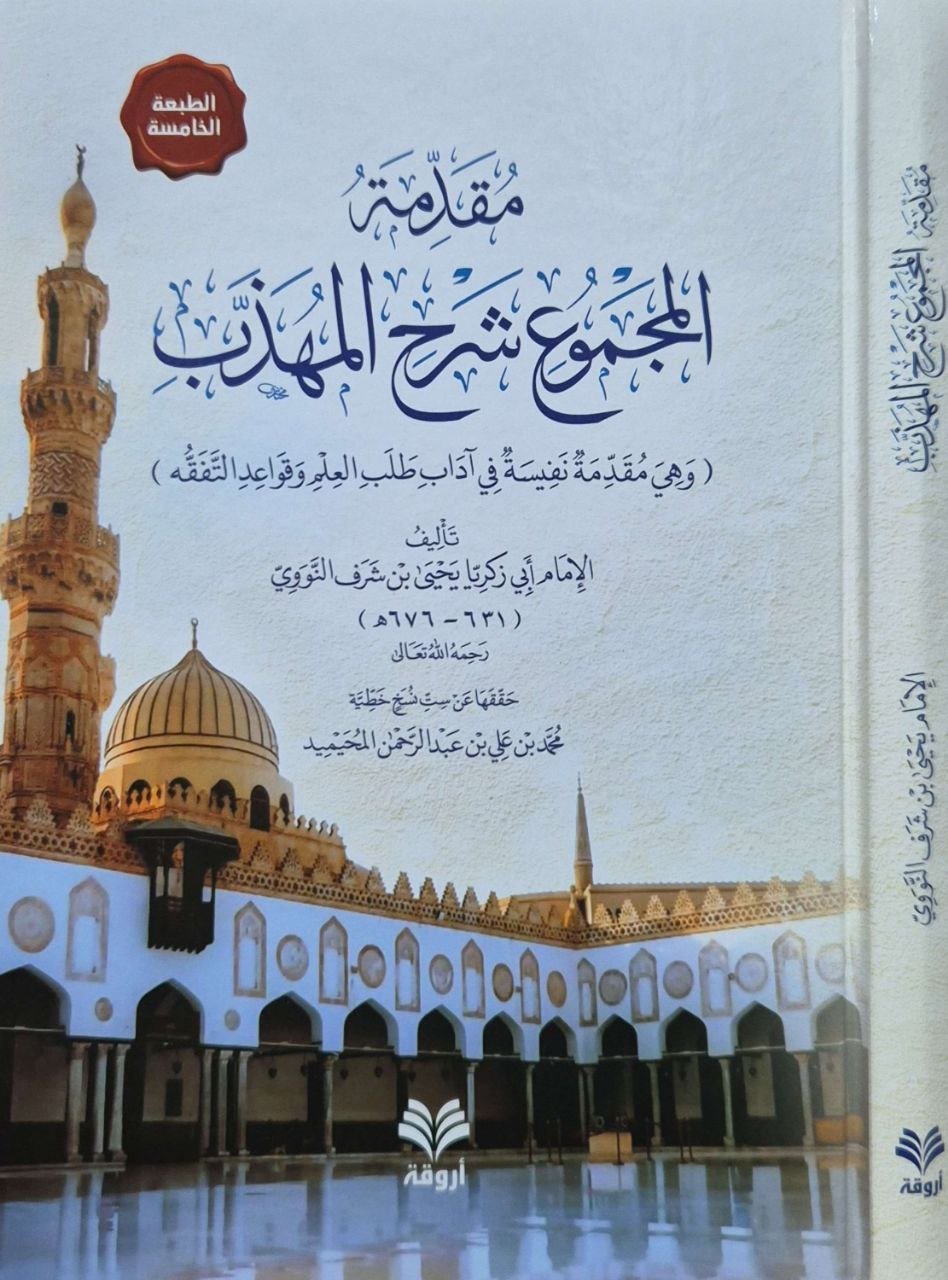 الطبعة
الخامسة
مُقَدِّمَةُ
المَجْمُوعِ شَرْحِ المُهَذَّبِ
( وَهِيَ مُقَدِّمَةٌ نَفِيسَةٌ فِي آدَابِ طَلَبِ العِلْمِ وَقَوَاعِدِ التَّفَقُّه )
تَأْلِيفُ
الإِمَامِ أَبِي زَكَرِيَّا يَحْيَىٰ بْن شَرَف النَّوَوِيّ
( ٦٣١ - ٦٧٦ هـ )
رَحِمَهُ اللهُ تَعَالَىٰ
حَقَّقَهَا عَنْ سِتِّ نُسَخٍ خَطِّيَّة
مُحَمَّد بْن عَلِي بْن عَبْد الرَّحْمٰن المُحَيْمِيد
أروقة
مُقَدِّمَةُ المَجْمُوعِ شَرْحِ المُهَذَّبِ
الإِمَام يَحْيَىٰ بْن شَرَف النَّوَوِيّ
أروقة